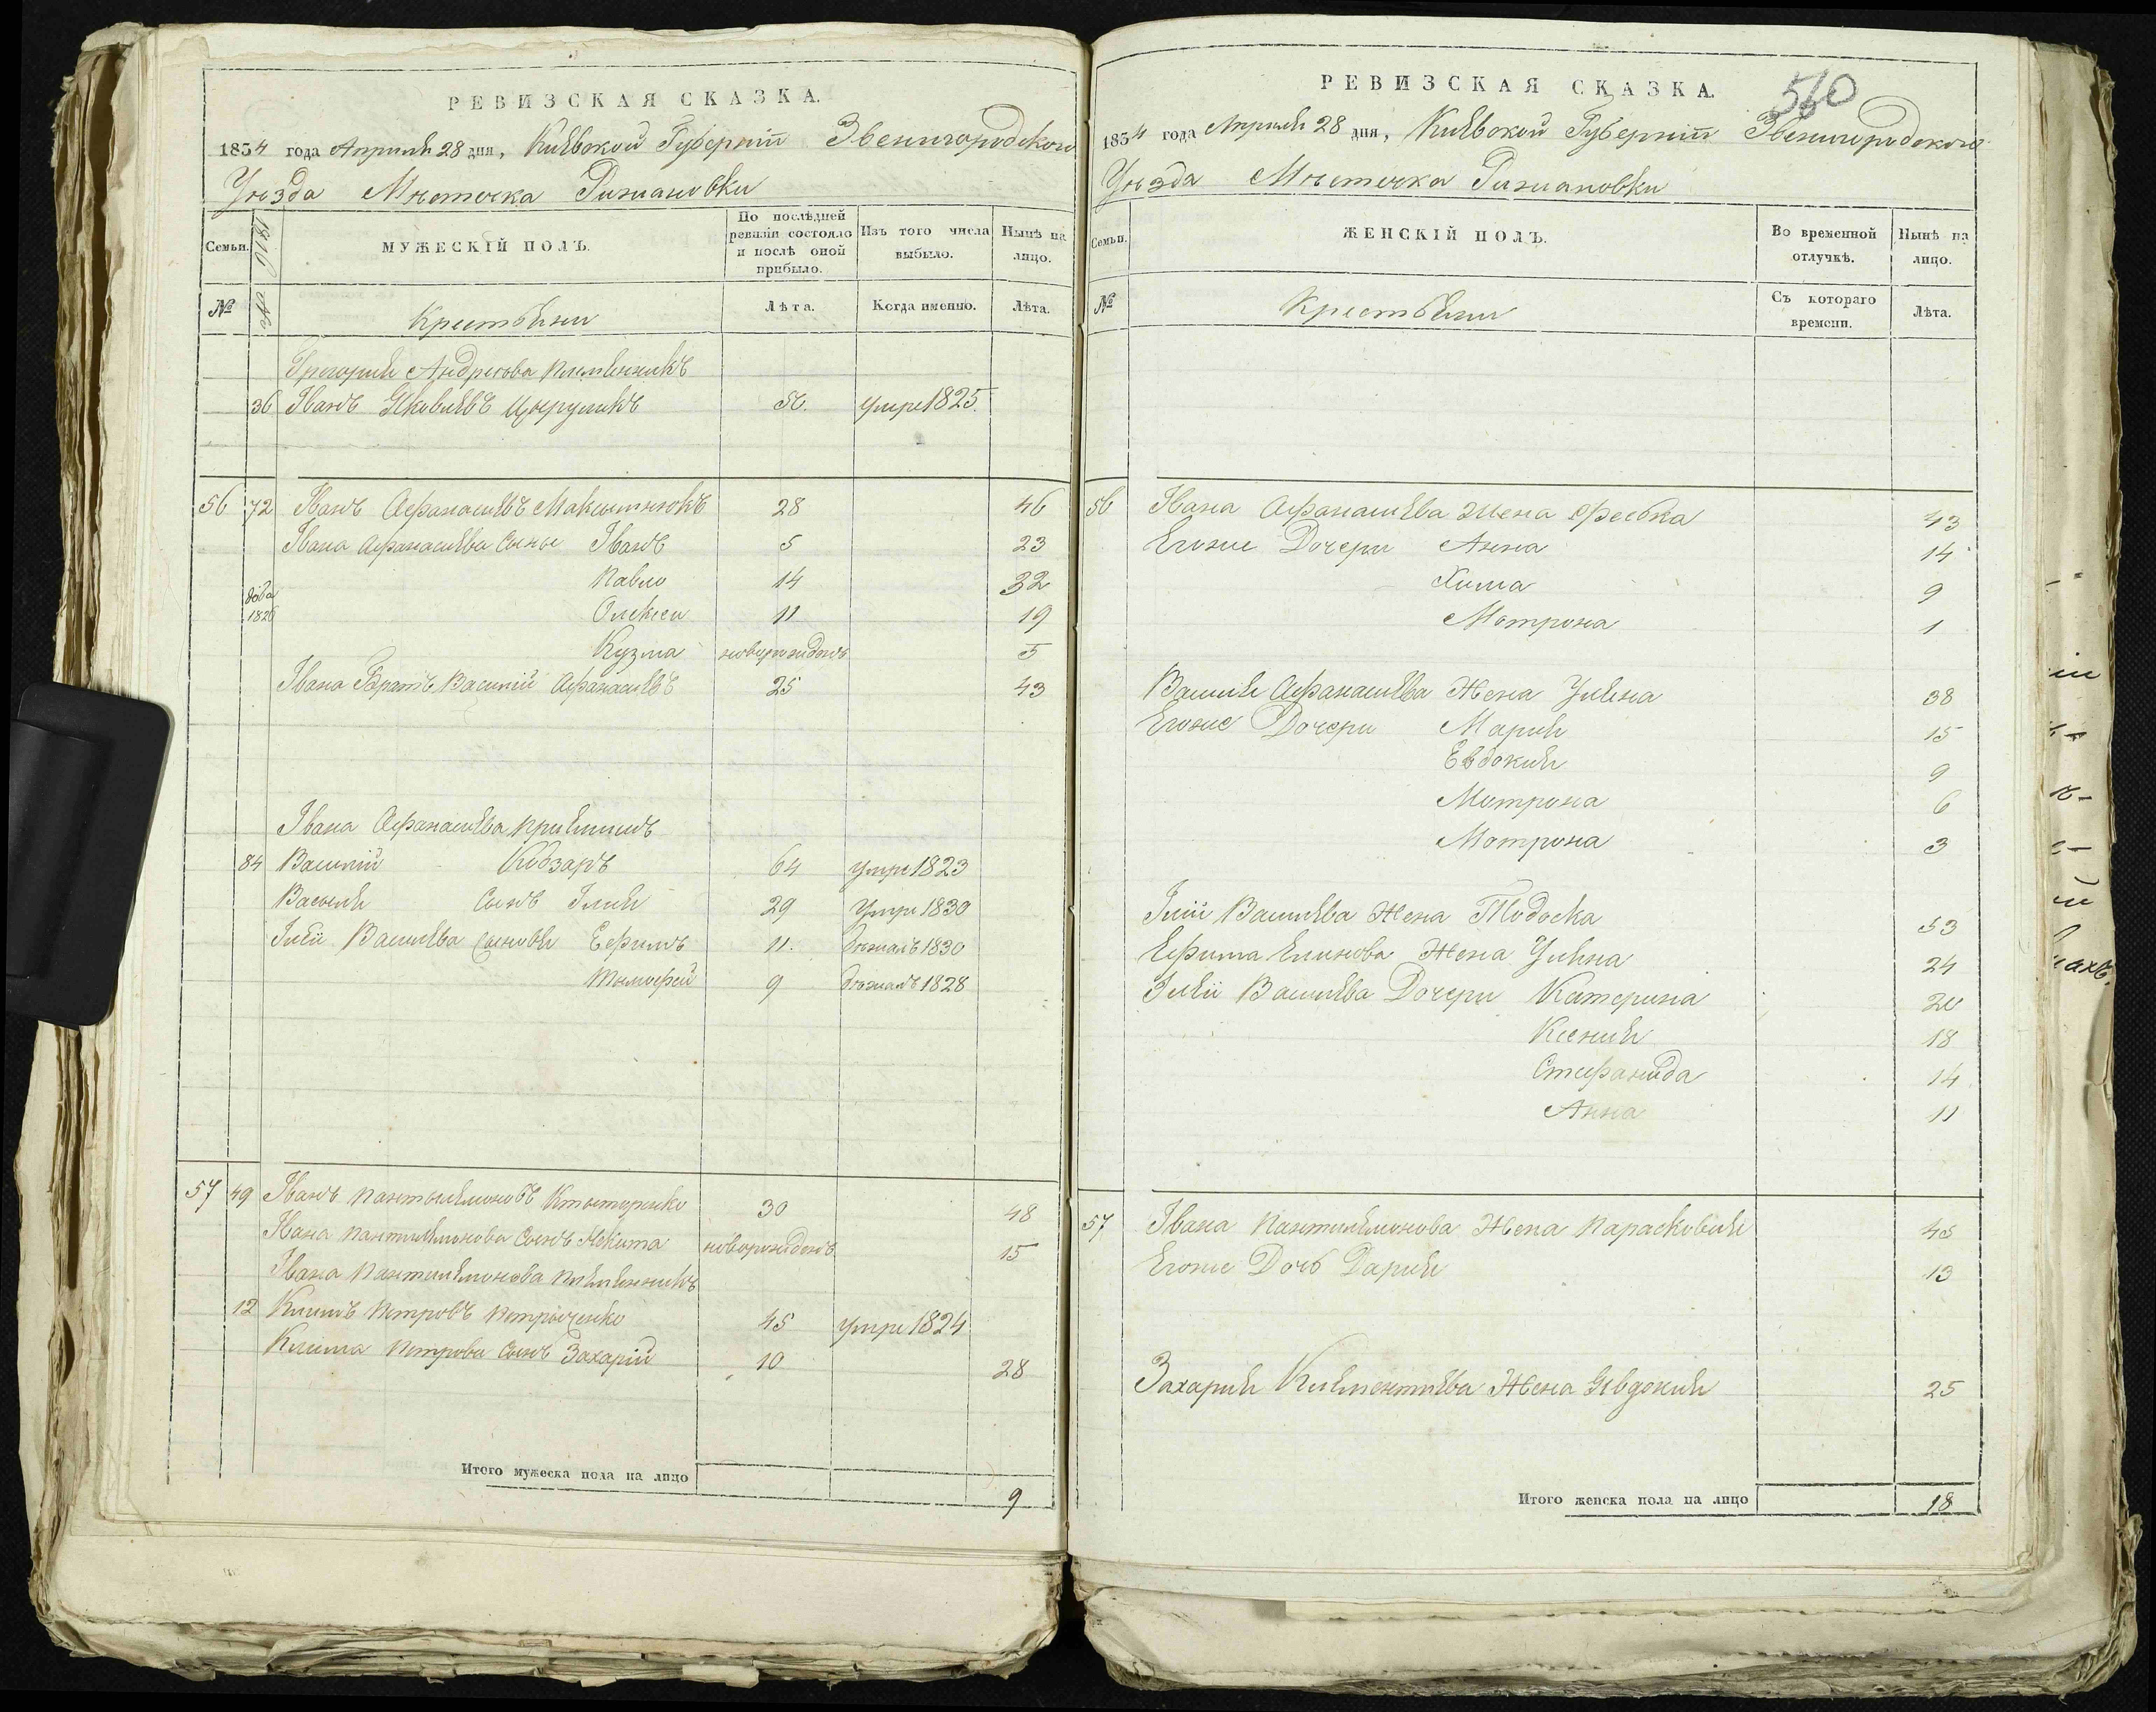 РЕВИЗСКАЯ СКАЗКА.
1834 года Апреля 28 дня, Кіевской Губерніи Звенигородского
Уѣзда Мѣстечка Рижановки
Семьи. 1816 МУЖЕСКІЙ ПОЛЪ. По послѣдней ревизіи состояло и послѣ оной прибыло. Изъ того числа выбыло. Нынѣ на лицо.
№ № Крестьяни Лѣта. Когда именно. Лѣта.
Григорія Андреева племянникъ
36 Іванъ Яковлевъ Цыруликъ 56. умре 1825.
56 72 Іванъ Афанасіевъ 28 46
Івана Афанасіева Сыны Іванъ 5 23
Павло 14 32
1826 Олексеи 11 19
Кузма новорожденъ 5
Івана Братъ Василій Афанасіевъ 25 43
Івана Афанасіева
84 Василій Кобзаръ 64 умре 1823
Василія Сынъ Ілия 29 Умре 1830
Іліи Василіева Сыновья Ефимъ 11. бѣжалъ 1830
Тимофей 9 бѣжалъ 1828
57 49 Іванъ Пантылимоновъ 30 48
Івана Пантилимонова Сынъ Никита новорожденъ 15
Івана Пантилимонова племянникъ
12 Климъ Петровъ Петрыченко 45 умре 1824
Клима Петрова Сынъ Захарій 10 28
Итого мужеска пола на лицо 9
РЕВИЗСКАЯ СКАЗКА. 560
1834 года Апреля 28 дня, Кіевской Губерніи Звенигородского
Уѣзда Мѣстечка Рижановки
Семьи. ЖЕНСКІЙ ПОЛЪ. Во временной отлучкѣ. Нынѣ на лицо.
№ Крестьяни Съ котораго времени. Лѣта.
56 Івана Афанасіева Жена 43
Егоже Дочери Анна 14
Хима 9
Мотрона 1
Василія Афанасіева Жена Уляна 38
Егоже Дочери Мария 15
Евдокия 9
Мотрона 6
Мотрона 3
Іліи Василіева Жена Тодоска 53
Ефима Жена Уляна 24
Іліи Василіева Дочери Катерина 20
Ксения 18
Стефанида 14
Анна 11
57 Івана Пантилимонова Жена Парасковия 45
Егоже Дочь Дария 13
Захария Климентіева Жена Явдокия 25
Итого женска пола на лицо 18